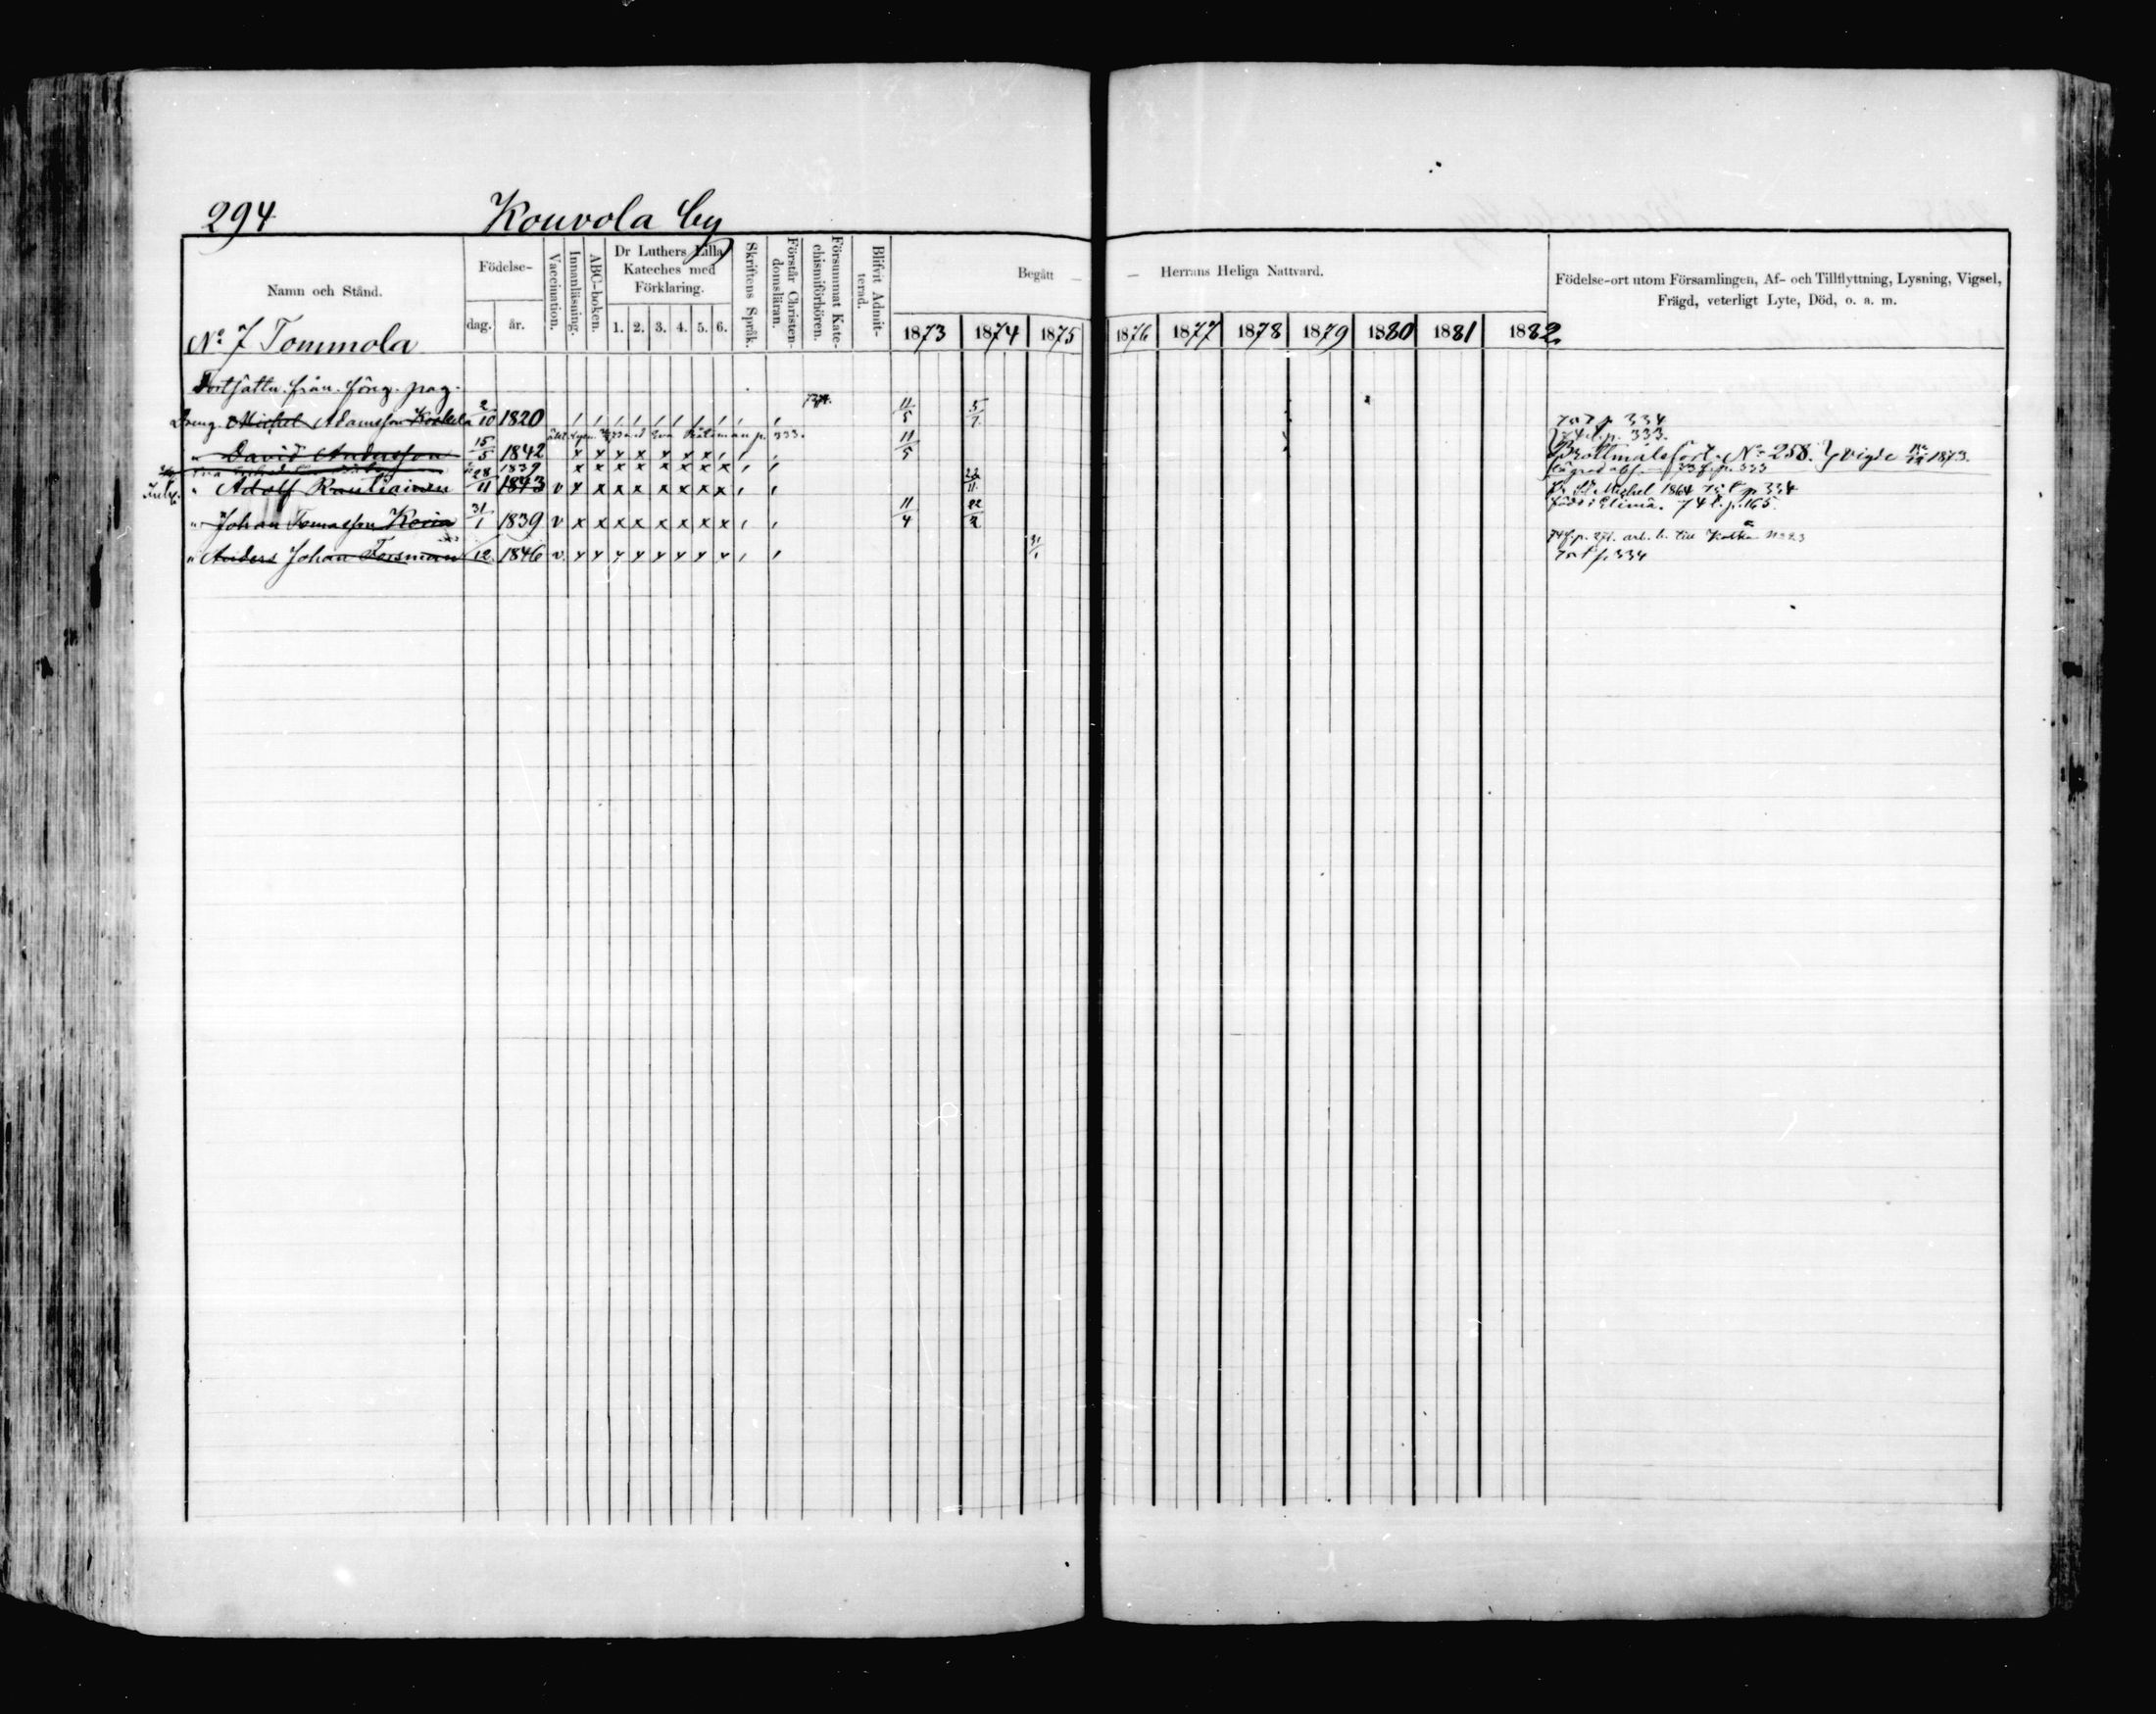 294 Kouvola by
Namn och Stånd.
Födelse-
dag. år.
Vaccination.
Innanläsning.
ABC-boken.
Dr Luthers Lilla Kateches med Förklaring.
1. 2. 3. 4. 5. 6.
Skriftens Språk.
Förstår Christendomsläran.
Försummat Katechismiförhören.
Blifvit Admitterad.
Begått — — Herrans Heliga Nattvard.
1873 1874 1875 1876 1877 1878 1879 1880 1881 1882
Födelse-ort utom Församlingen, Af- och Tillflyttning, Lysning, Vigsel,
Frägd, veterligt Lyte, Död, o. a. m.
No 7 Tommola
Fortsättn. från. föreg. pag.
Dreng. Michel Adamsson Koskela 2/10 1820 11/5 p. 334
p. 333.
" David Andersson 15/5 1842 x x x x x x x 11/5 Brottmålsfört. No 258. vigde 1873.
1839 x x x x x x x x p. 333
" Adolf Rautiainen 28/11 1843 v x x x x x x x x 22/11 St Michel 1864 p 334
" Johan Tomasson Koria 31/1 1839 v x x x x x x x x 11/4 22/2 född i Elimä. 74 p. 165.
" Anders Johan Forsman 12 1846 v. x x x x x x x x 31/1 p. 334